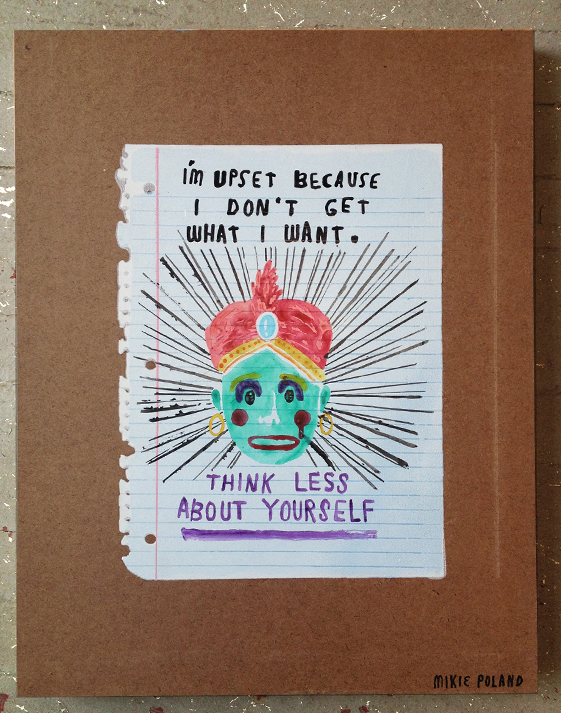 i'm UPSET BECAUSE
I DON'T GET
WHAT I WANT.
THINK LESS
ABOUT YOURSELF
MIKIE POLAND